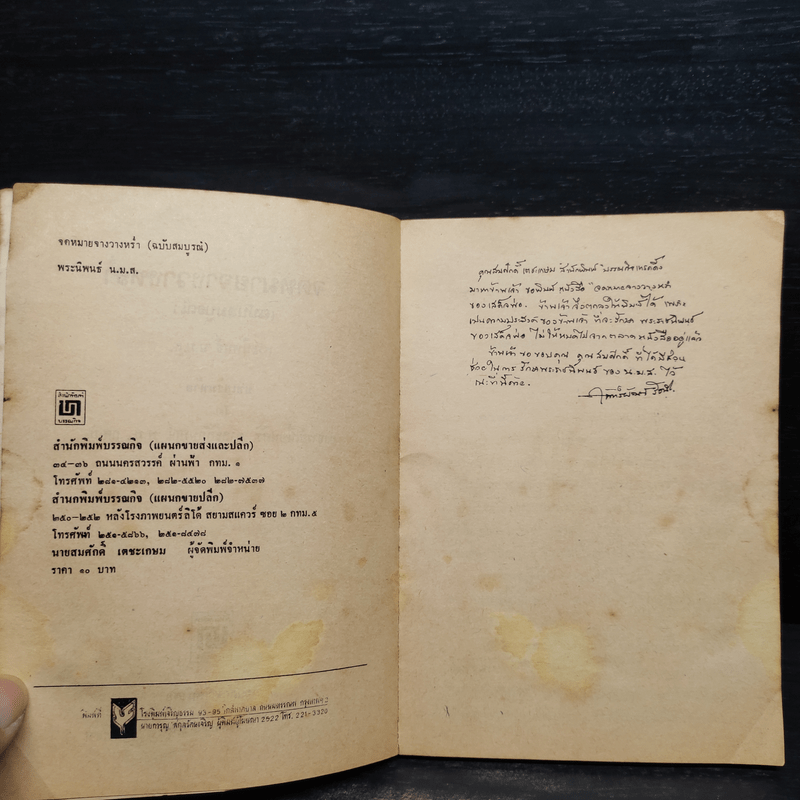 จดหมายจางวางหร่ำ (ฉบับสมบูรณ์)
พระนิพนธ์ น.ม.ส.
สำนักพิมพ์
บรรณกิจ
สำนักพิมพ์บรรณกิจ (แผนกขายส่งและปลีก)
๓๔-๓๖ ถนนนครสวรรค์ ผ่านฟ้า กทม. ๑
โทรศัพท์ ๒๘๑-๔๒๑๓, ๒๘๒-๕๕๒๐ ๒๘๒-๗๕๓๗
สำนักพิมพ์บรรณกิจ (แผนกขายปลีก)
๒๕๐-๒๕๒ หลังโรงภาพยนตร์ลิโด้ สยามสแควร์ ซอย ๒ กทม. ๕
โทรศัพท์ ๒๕๑-๕๘๖๖, ๒๕๑-๘๔๗๘
นายสมศักดิ์ เตชะเกษม ผู้จัดพิมพ์จำหน่าย
ราคา ๑๐ บาท
พิมพ์ที่
โรงพิมพ์เจริญธรรม 93-95
2522 โทร. 221-3320
คุณสมศักดิ์ เตชะเกษม สำนักพิมพ์ บรรณกิจเทรดดิ้ง
มาหาข้าพเจ้า ขอพิมพ์ หนังสือ "จดหมายจางวางหร่ำ
ของเสด็จพ่อ. ข้าพเจ้าจึงตกลงให้พิมพ์ได้ เพราะ
เป็นความประสงค์ของข้าพเจ้า ที่จะรักษา พระราชนิพนธ์
ของเสด็จพ่อ ไม่ให้หมดไปจากตลาดหนังสืออยู่แล้ว
ข้าพเจ้าขอขอบคุณ คุณสมศักดิ์ ที่ได้มีส่วน
ช่วยในการรักษาพระราชนิพนธ์ ของ น.ม.ส. ไว้
ณะที่นี้ด้วย.